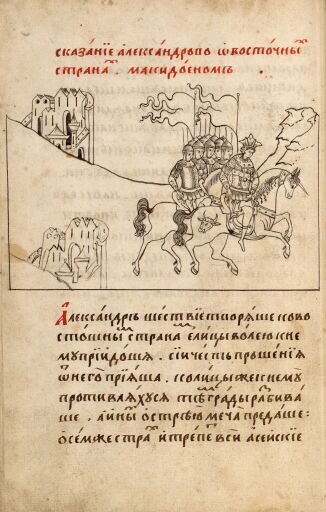 сказанїе александрово ѿ восточны̑
страна̑ . македоеномъ .
Александръ шествїе творѧше ко во
сточны̑ страна̑ елицы волею к не
мꙋ прїидоша . сїи честь прощенїѧ
ѿ него прїѧша . колицы же к немꙋ
противлѧхꙋсѧ тѣ̑ грады разбива
ше . а ины̑ острею меча предаше :
о сем же стра̑ и трепе̑ всѝ асейскїе